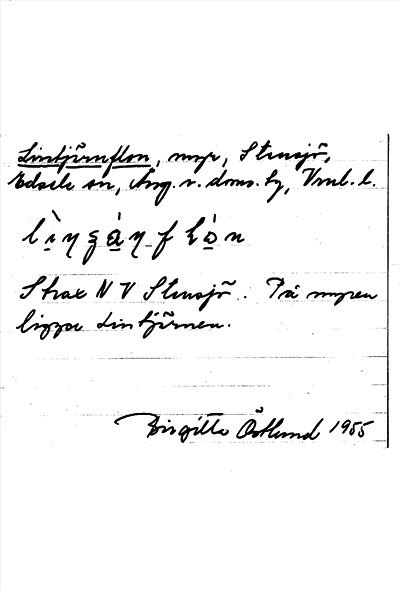 Lintjärnflon, myr, Stensjö,
Edsele sn, Ång. n. doms. tg, Vnrl. l.
Strax NV Stensjö. På myren
ligga Lintjärnen.
Birgitta Östlund 1955